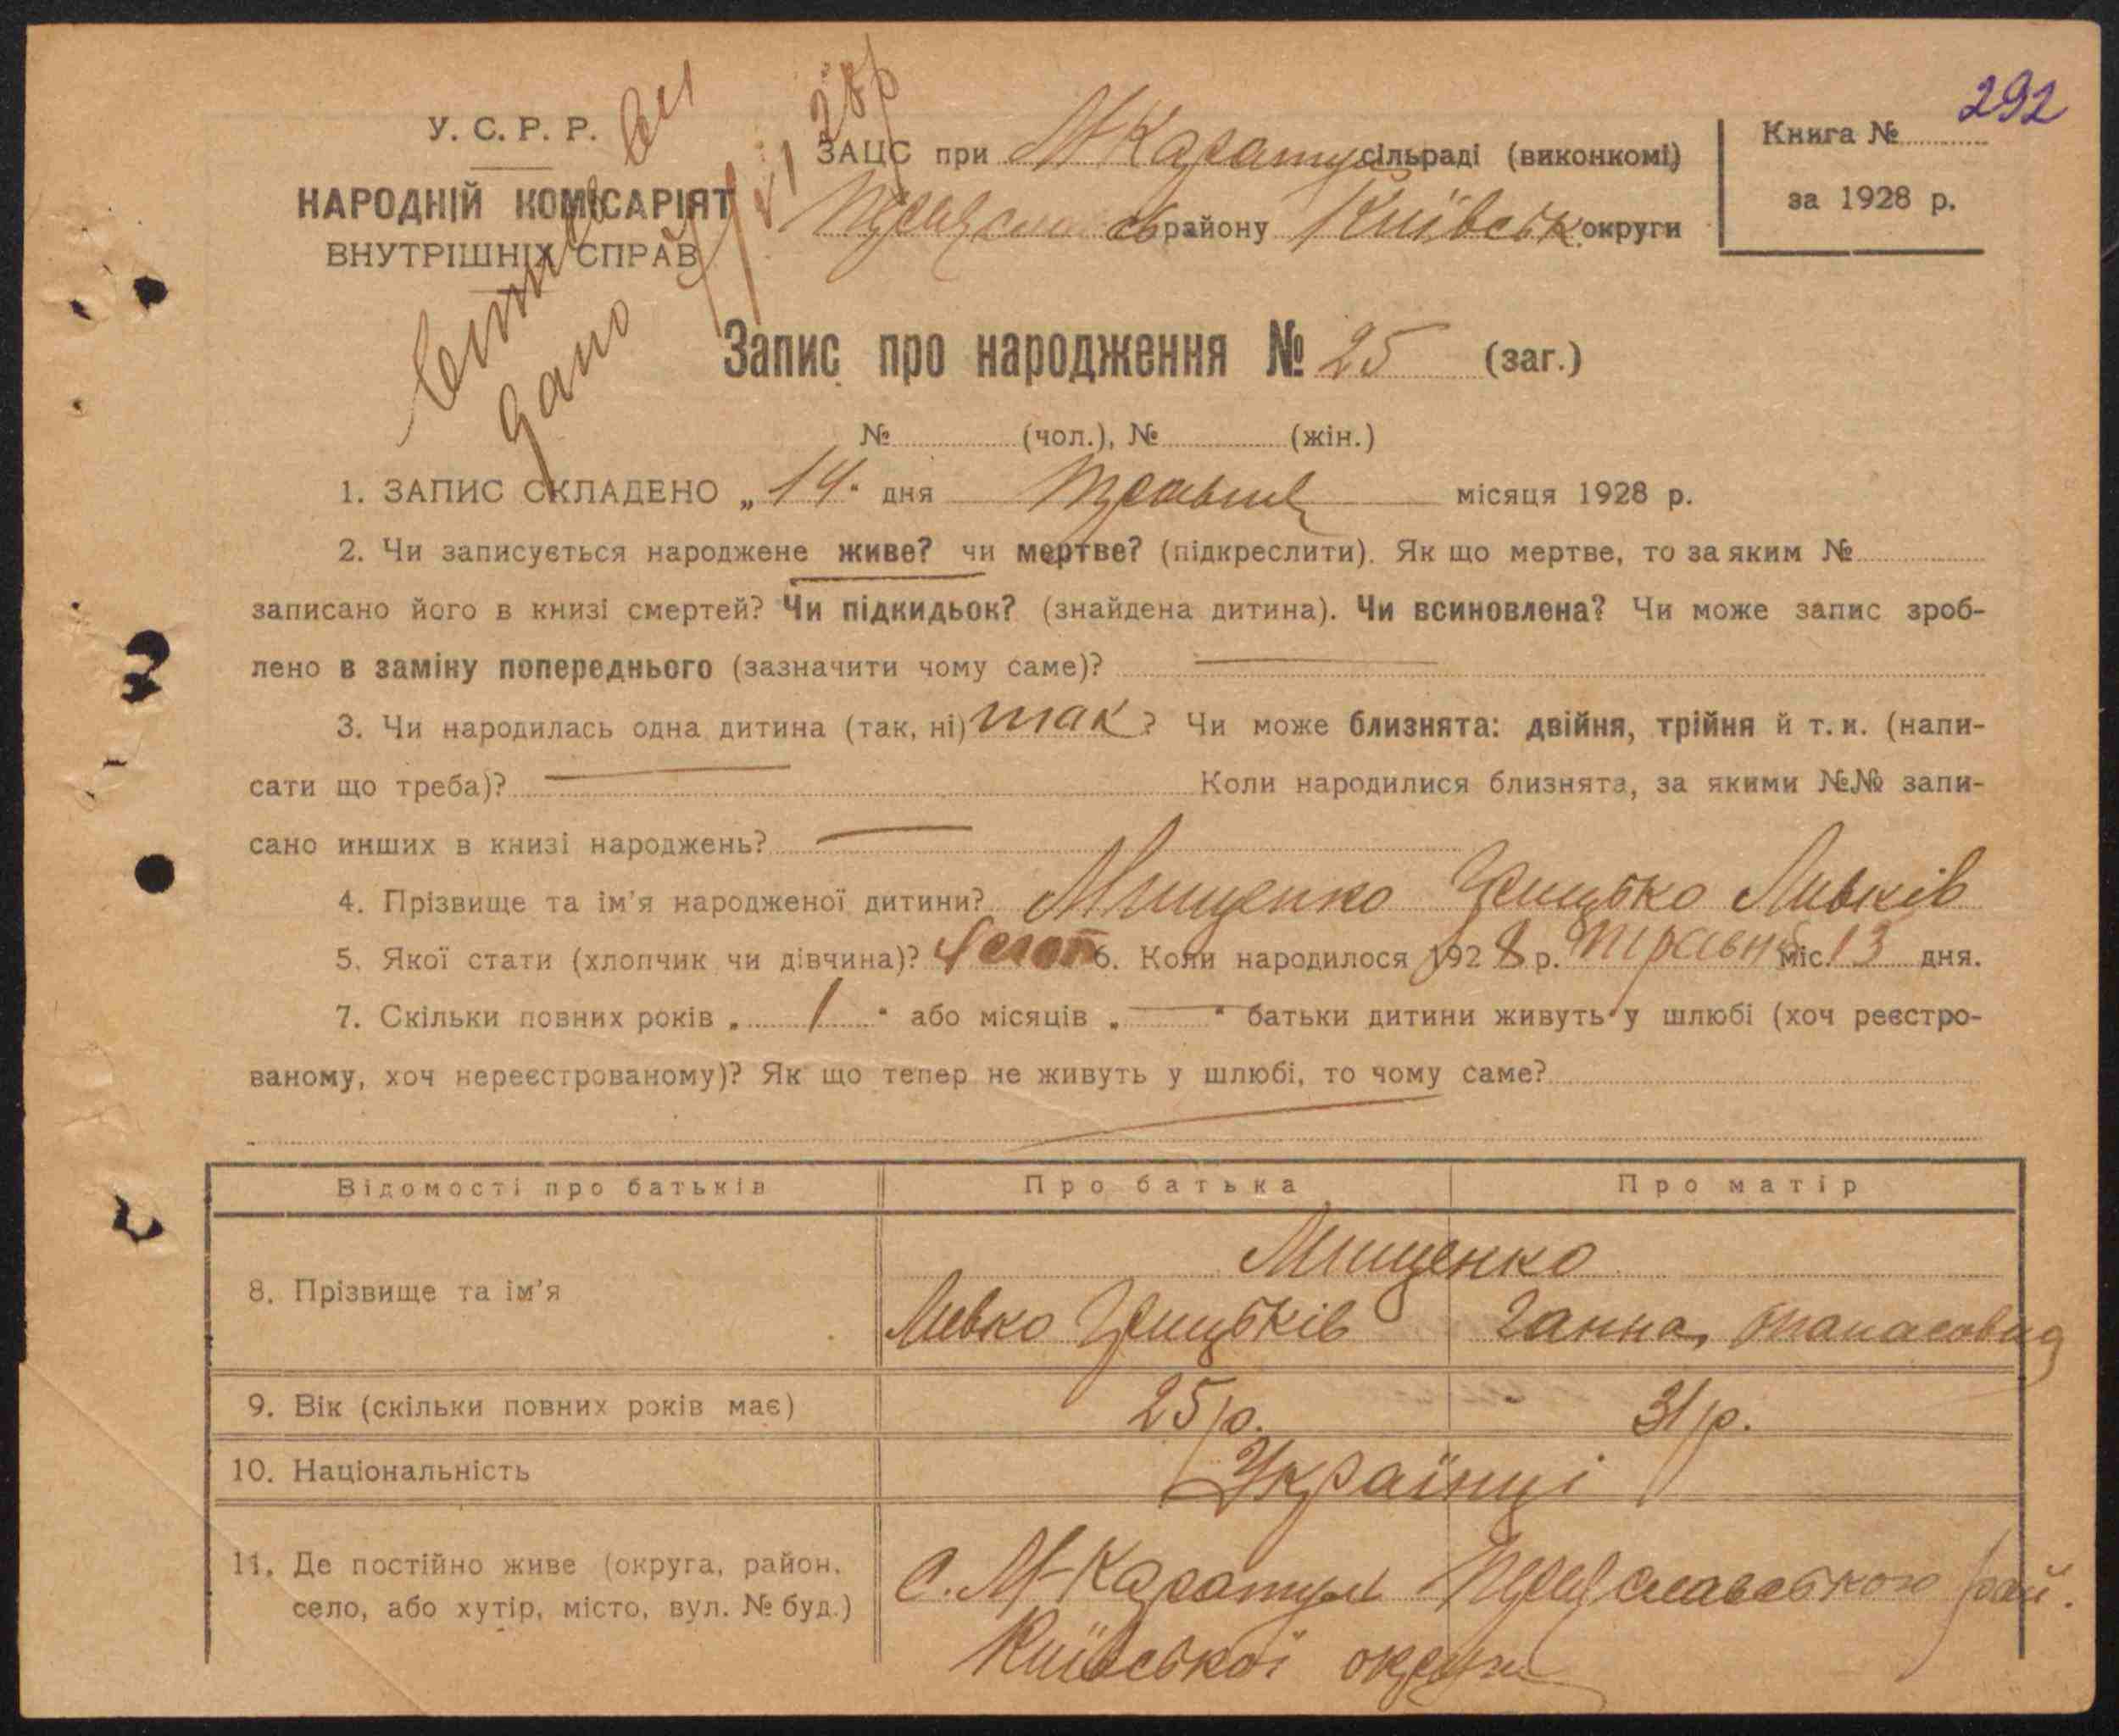 292
У. С. Р. Р.
НАРОДНІЙ КОМІСАРІЯТ
ВНУТРІШНІХ СПРАВ
дано
28 р
ЗАЦС при М-Каратул сільраді (виконкомі)
району Київськ округи
Книга №
за 1928 р.
Запис про народження № 25 (заг.)
№ (чол.), № (жін.)
1. ЗАПИС СКЛАДЕНО „ 14 “ дня Травня місяця 1928 р.
2. Чи записується народжене живе? чи мертве? (підкреслити). Як що мертве, то за яким №
записано його в книзі смертей? Чи підкидьок? (знайдена дитина). Чи всиновлена? Чи може запис зроб-
лено в заміну попереднього (зазначити чому саме)?
3. Чи народилась одна дитина (так, ні) так ? Чи може близнята: двійня, трійня й т. и. (напи-
сати що треба)? Коли народилися близнята, за якими №№ запи-
сано инших в книзі народжень?
4. Прізвище та ім'я народженої дитини? Мищенко Грицько Левків
5. Якої стати (хлопчик чи дівчина)? 6. Коли народилося 1928 р. Травня міс. 13 дня.
7. Скільки повних років „ 1 “ або місяців „ — “ батьки дитини живуть у шлюбі (хоч реєстро-
ваному, хоч нереєстрованому)? Як що тепер не живуть у шлюбі, то чому саме?
Відомості про батьків Про батька Про матір
8. Прізвище та ім'я Мищенко
Левко Грицьків Ганна Опанасовна
9. Вік (скільки повних років має) 25 р. 31 р.
10. Національність Українці
11. Де постійно живе (округа, район, село, або хутір, місто, вул. № буд.) с. М-Каратул Переяславського рай.
Київської округи